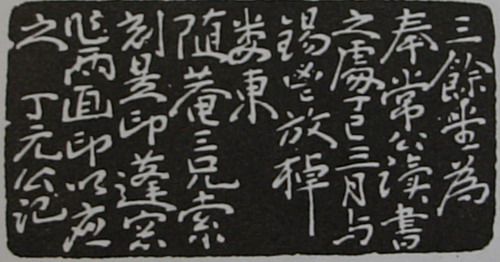 三餘堂為
奉常公讀書
之處丁巳三月与
錫鬯放棹
婁東
随菴三兄索
刻是印蓬窓
作兩面印以應
之 丁元公記